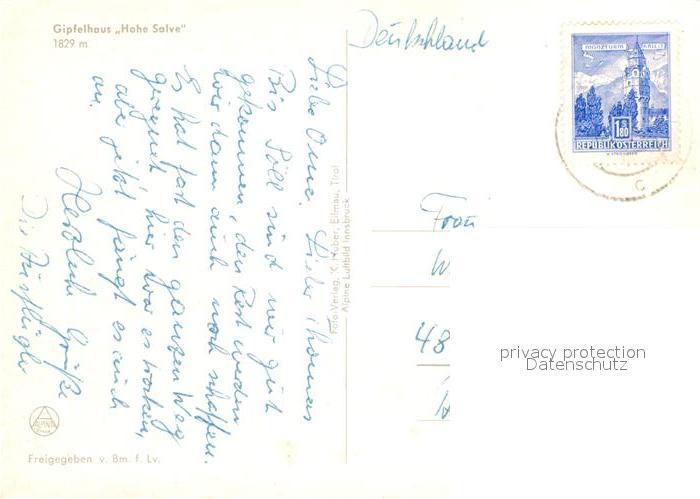 Gipfelhaus „Hohe Salve"
1829 m
Liebe Oma, Lieber Thomas
Bis Söll sind wir gut
gekommen, den Rest werden
wir dann auch noch schaffen.
Es hat fast den ganzen Weg
geregnet hier war es trocken,
aber jetzt fängt es auch
an.
Herzliche Grüße
Die
Freigegeben v. Bm. f. Lv.
Foto-Verlag K. Huber, Ellmau, Tirol
Alpine Luftbild Innsbruck
Deutschland
MÜNZTURM HALL I.T.
1.80
S
REPUBLIK ÖSTERREICH
C
Frau
W
48
privacy protection
Datenschutz